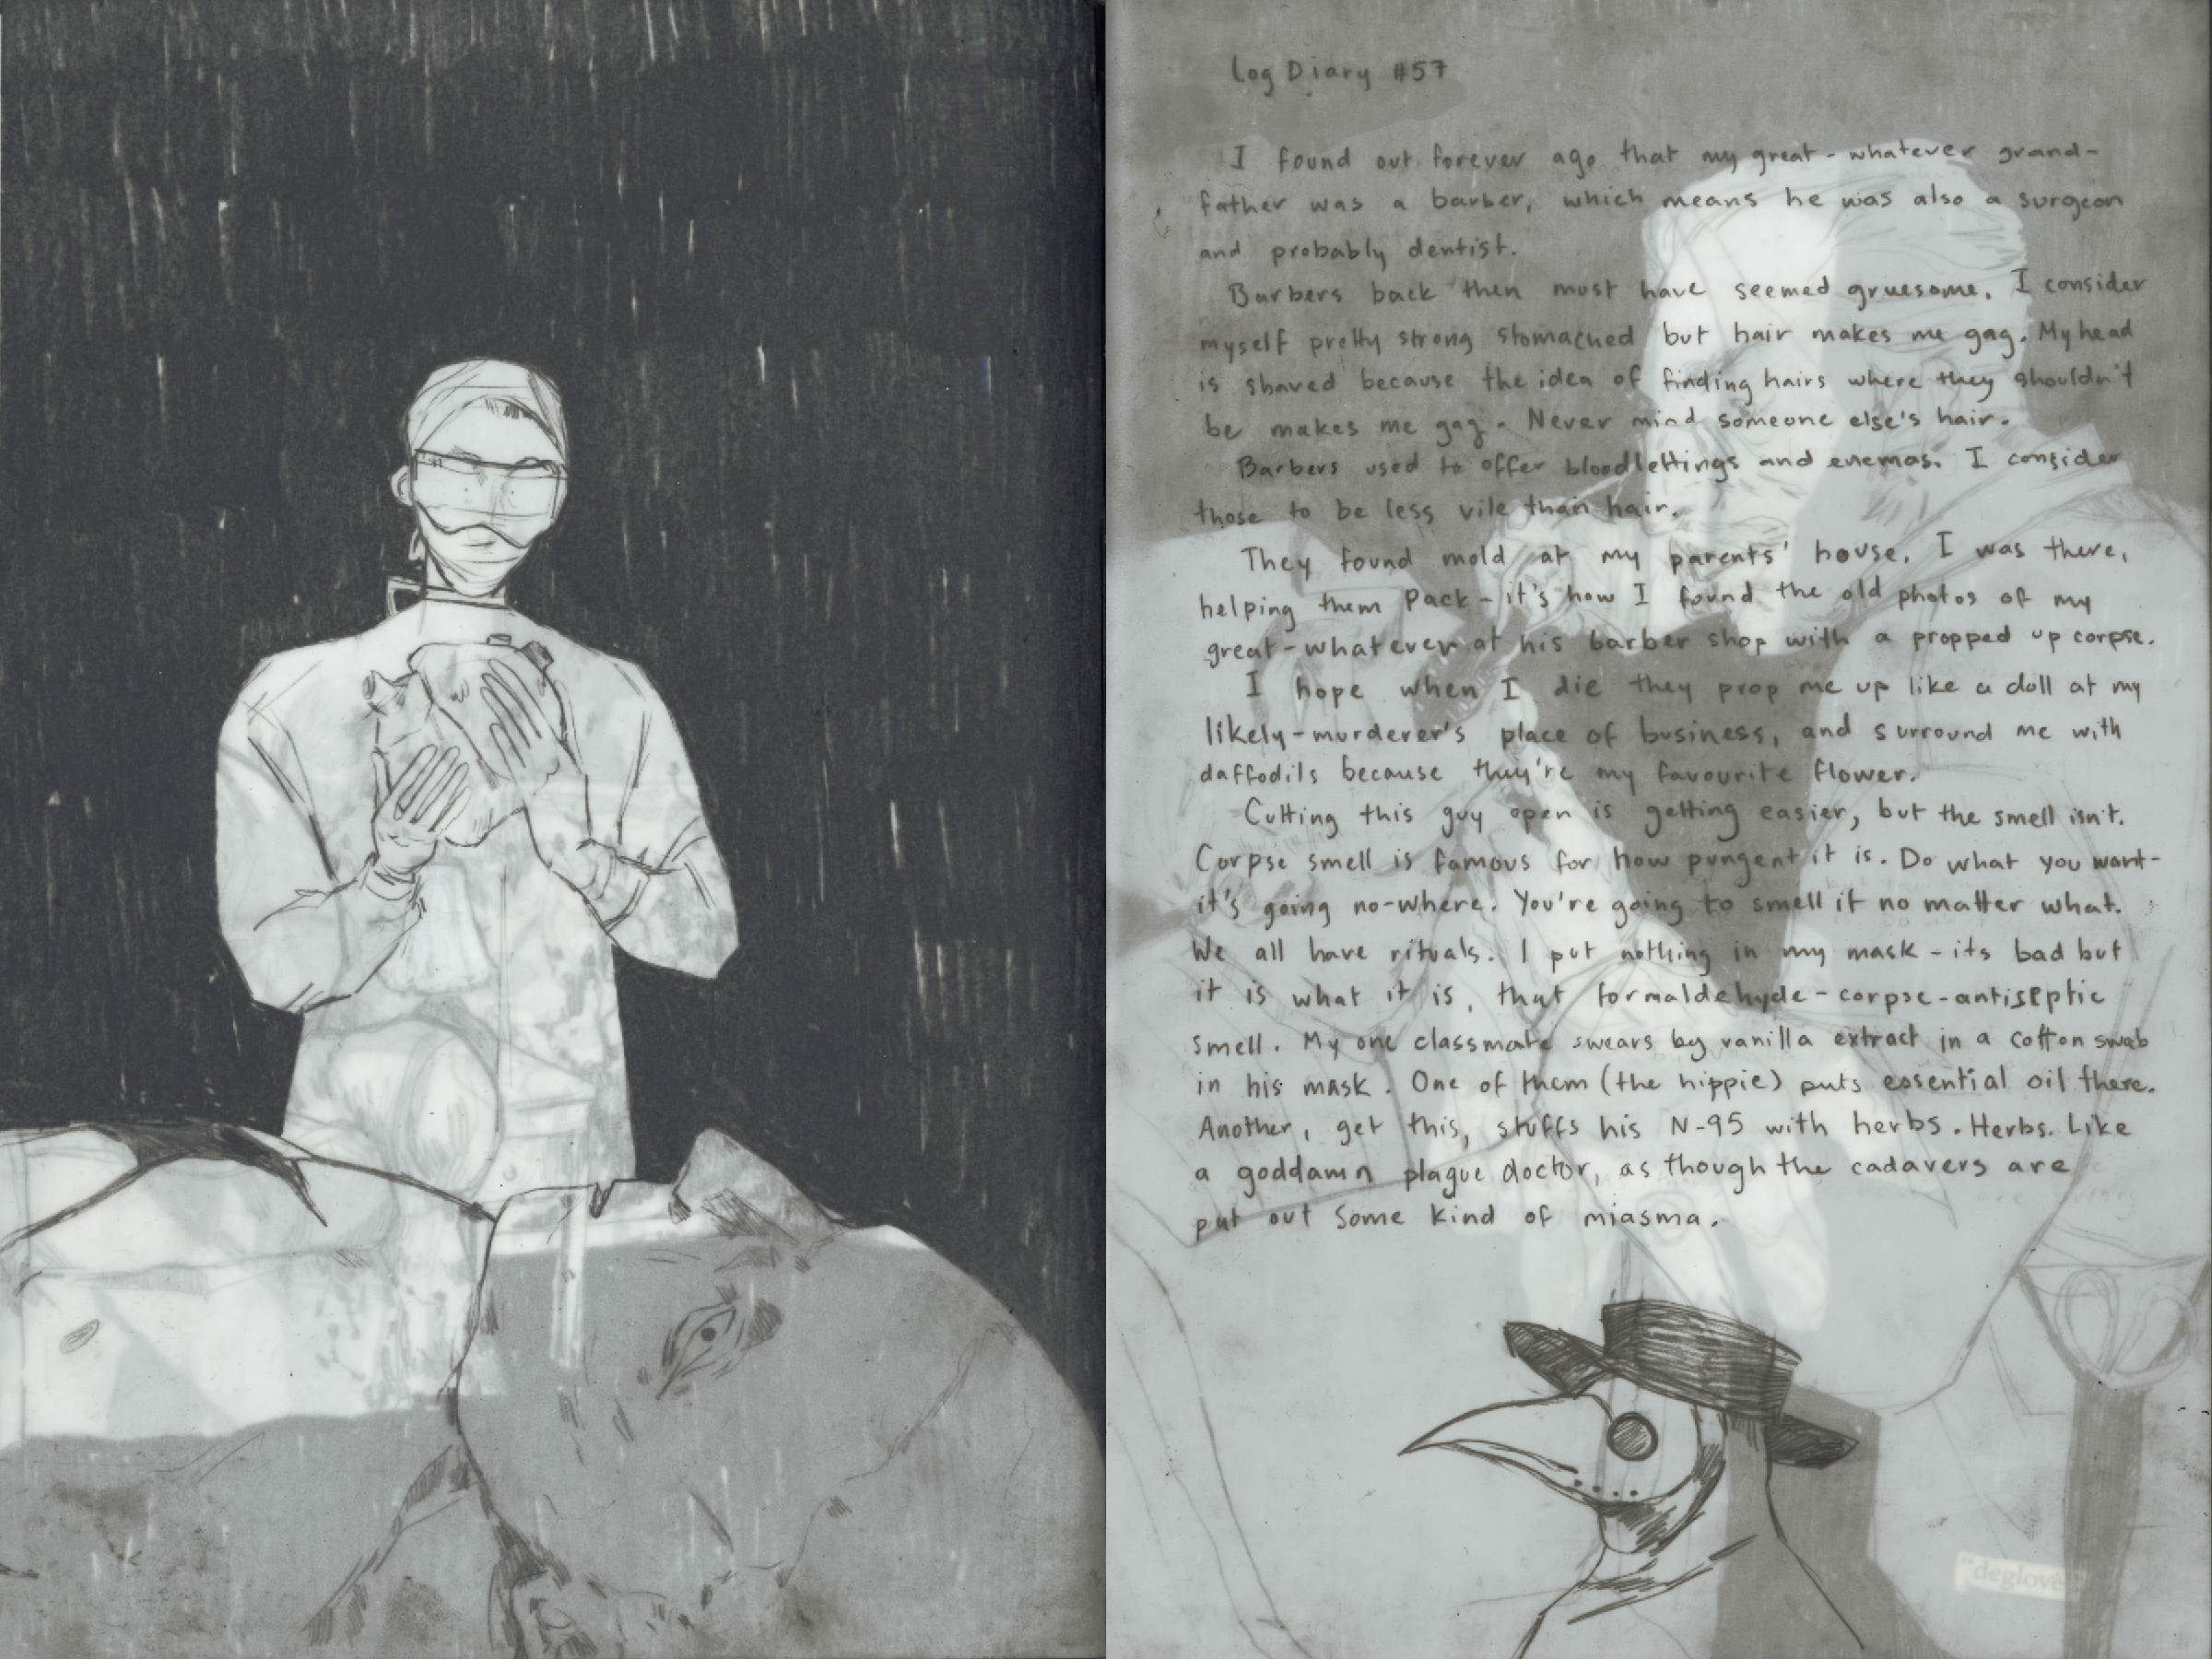 Log Diary #57
I found out forever ago that my great-whatever grand-
father was a barber, which means he was also a surgeon
and probably dentist.
Barbers back then must have seemed gruesome. I consider
myself pretty strong stomached but hair makes me gag. My head
is shaved because the idea of finding hairs where they shouldn't
be makes me gag. Never mind someone else's hair.
Barbers used to offer bloodlettings and enemas. I consider
those to be less vile than hair.
They found mold at my parents' house. I was there,
helping them pack - it's how I found the old photos of my
great-whatever at his barber shop with a propped up corpse.
I hope when I die they prop me up like a doll at my
likely-murderer's place of business, and surround me with
daffodils because they're my favourite flower.
Cutting this guy open is getting easier, but the smell isn't.
Corpse smell is famous for how pungent it is. Do what you want-
it's going no-where. You're going to smell it no matter what.
We all have rituals. I put nothing in my mask - its bad but
it is what it is, that formaldehyde-corpse-antiseptic
smell. My one classmate swears by vanilla extract in a cotton swab
in his mask. One of them (the hippie) puts essential oil there.
Another, get this, stuffs his N-95 with herbs. Herbs. Like
a goddamn plague doctor, as though the cadavers are
put out some kind of miasma.
"deglove